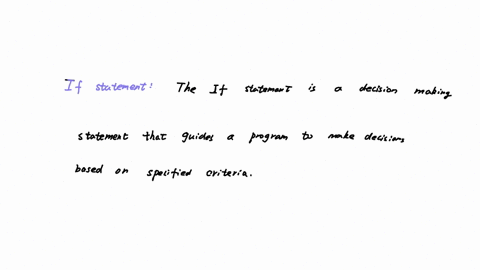 If statement: The If statement is a decision making
statement that guides a program to make decisions
based on specified criteria.